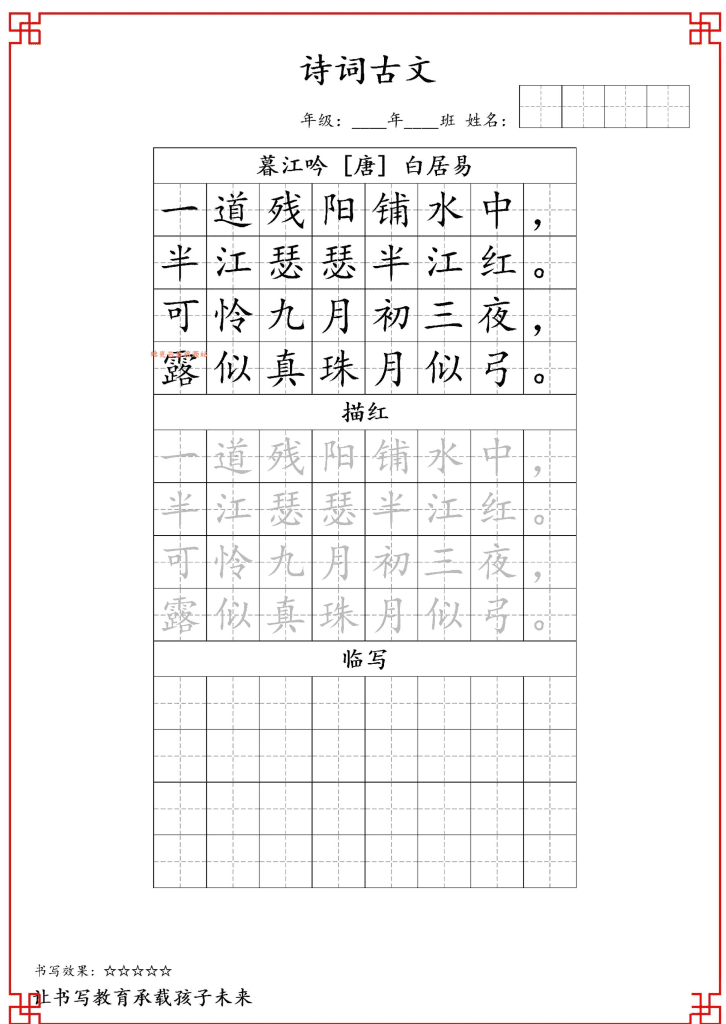 诗词古文
年级：____年____班 姓名：
暮江吟 [唐] 白居易
一道残阳铺水中，
半江瑟瑟半江红。
可怜九月初三夜，
露似真珠月似弓。
描红
一道残阳铺水中，
半江瑟瑟半江红。
可怜九月初三夜，
露似真珠月似弓。
临写
书写效果：☆☆☆☆☆
让书写教育承载孩子未来